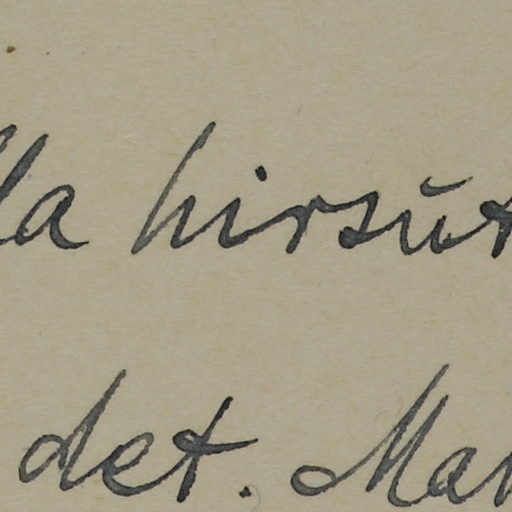 lla hirsŭt
det. Mar